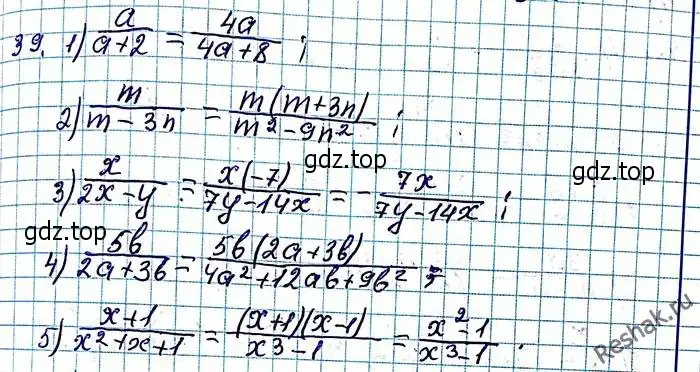 39. 1) a/(a+2) = 4a/(4a+8) ;
2) m/(m-3n) = m(m+3n)/(m²-9n²) ;
gdz.top
gdz.top
3) x/(2x-y) = x(-7)/(7y-14x) = -7x/(7y-14x) ;
gdz.top
4) 5b/(2a+3b) = 5b(2a+3b)/(4a²+12ab+9b²) ;
5) (x+1)/(x²+x+1) = (x+1)(x-1)/(x³-1) = (x²-1)/(x³-1) .
Reshak.ru